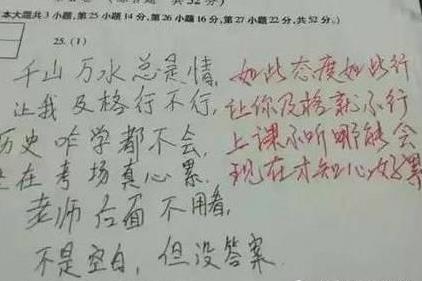 本大题共3小题,第25小题14分,第26小题16分,第27小题22分,共52分。)
25. (1)
千山万水总是情, 如此态度如此行
让我及格行不行, 让你及格就不行
历史咋学都不会, 上课不听哪能会
在考场真心累. 现在才知心好累
老师后面不用看,
不是空白,但没答案.